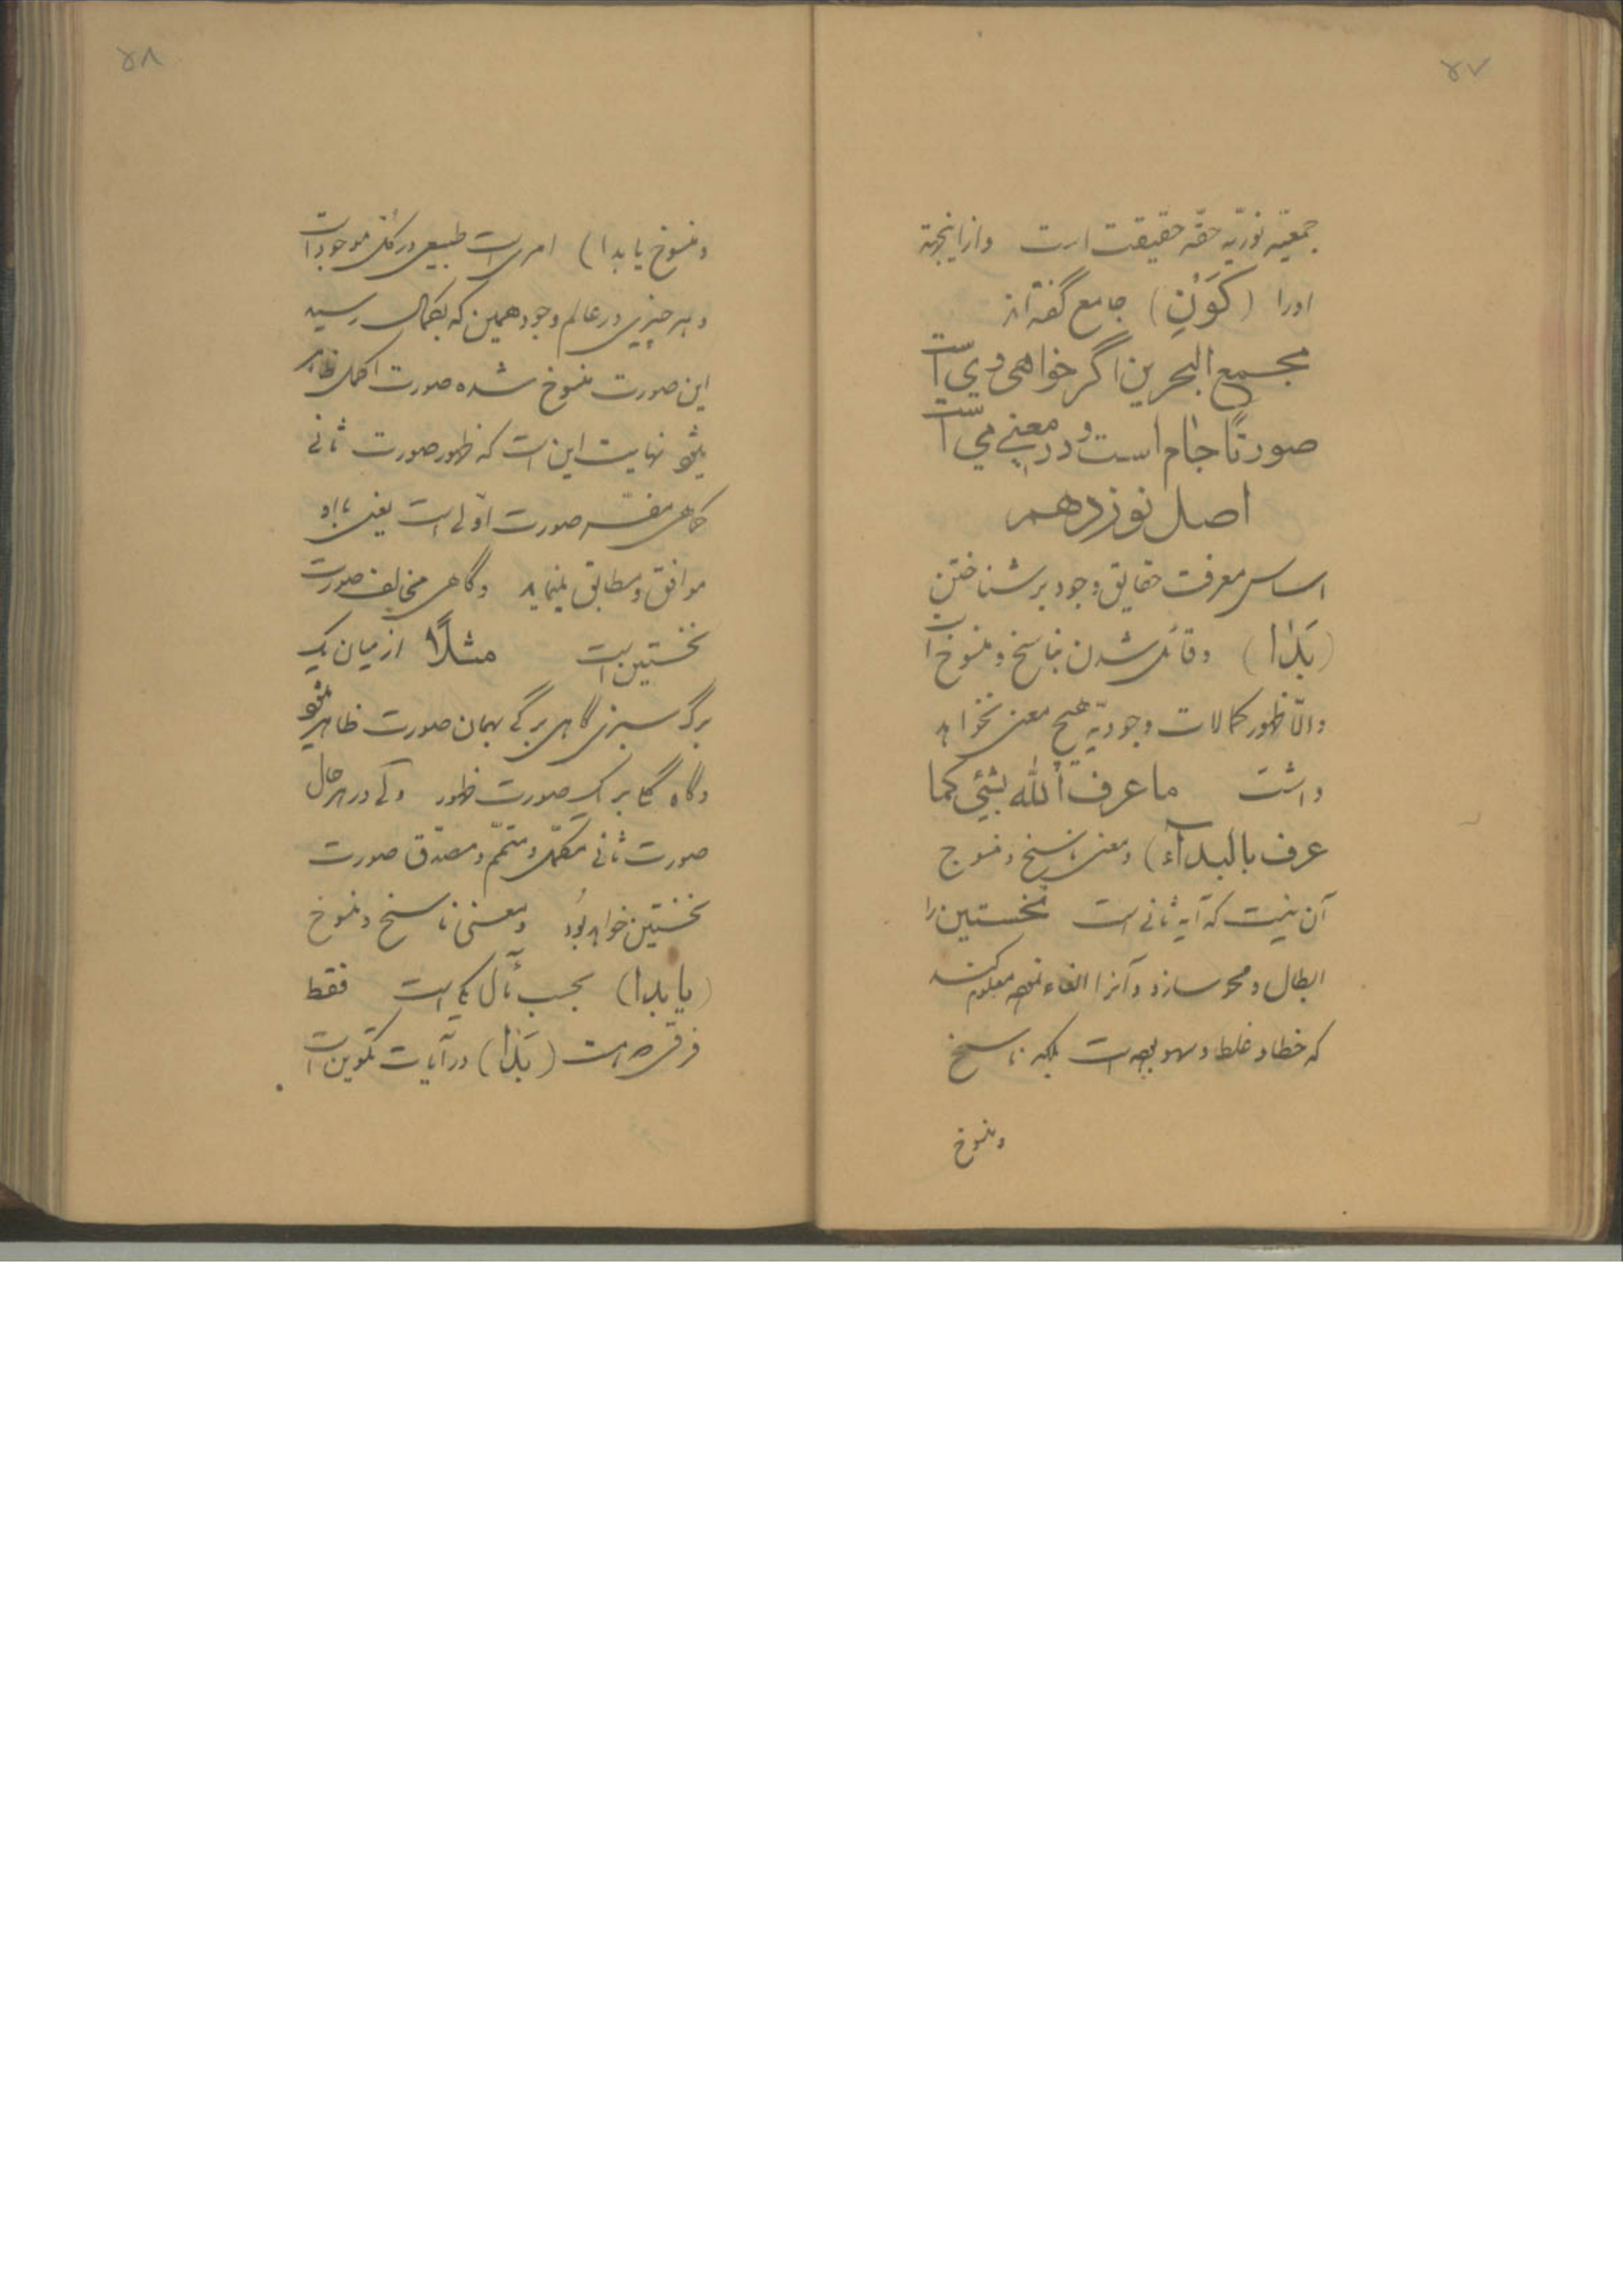 ۵۷
جمعیّه نوریّه حقّه حقیقت است وازاینجهة
اورا (کَوْنِ) جامع گفته‌اند
مجمع البحرین اگر خواهی وی است
صورتًا جام است و در معنی می است
اصل نوزدهم
اساس معرفت حقایق وجود بر شناختن
(بَدٰا) و قائل شدن بناسخ و منسوخ است
والّا ظهور کمالات وجودیّه هیچ معنی نخواهد
داشت ما عرف اللّه بشیٔ کما
عرف بالبدآء) ومعنی ناسخ ومنسوخ
آن نیست که آیه ثانی است نخستین را
ابطال و محو سازد و آنرا الغاء نموده معلوم کند
که خطا و غلط و سهو بوده است بلکه ناسخ
ومنسوخ
۵۸
ومنسوخ یا بدا) امری است طبیعی در کلّ موجودات
و هر چیزی در عالم وجود همین که بکمال رسید
این صورت منسوخ شده صورت اکمل ظاهر
میشود نهایت این است که ظهور صورت ثانی
گاهی مفسّر صورت اوّلی است یعنی با او
موافق و مطابق مینماید و گاهی مخالف صورت
نخستین است مثلًا از میان یک
برگ سبزی گاهی برگی بهمان صورت ظاهر میشود
و گاه گلی بر یک صورت ظهور ولی در هر حال
صورت ثانی مکمّل و متمّم و مصدّق صورت
نخستین خواهد بُود ومعنی ناسخ ومنسوخ
(یا بدا) بحسب مآل یکی است فقط
فرقی که هست (بَدٰا) در آیات تکوین است